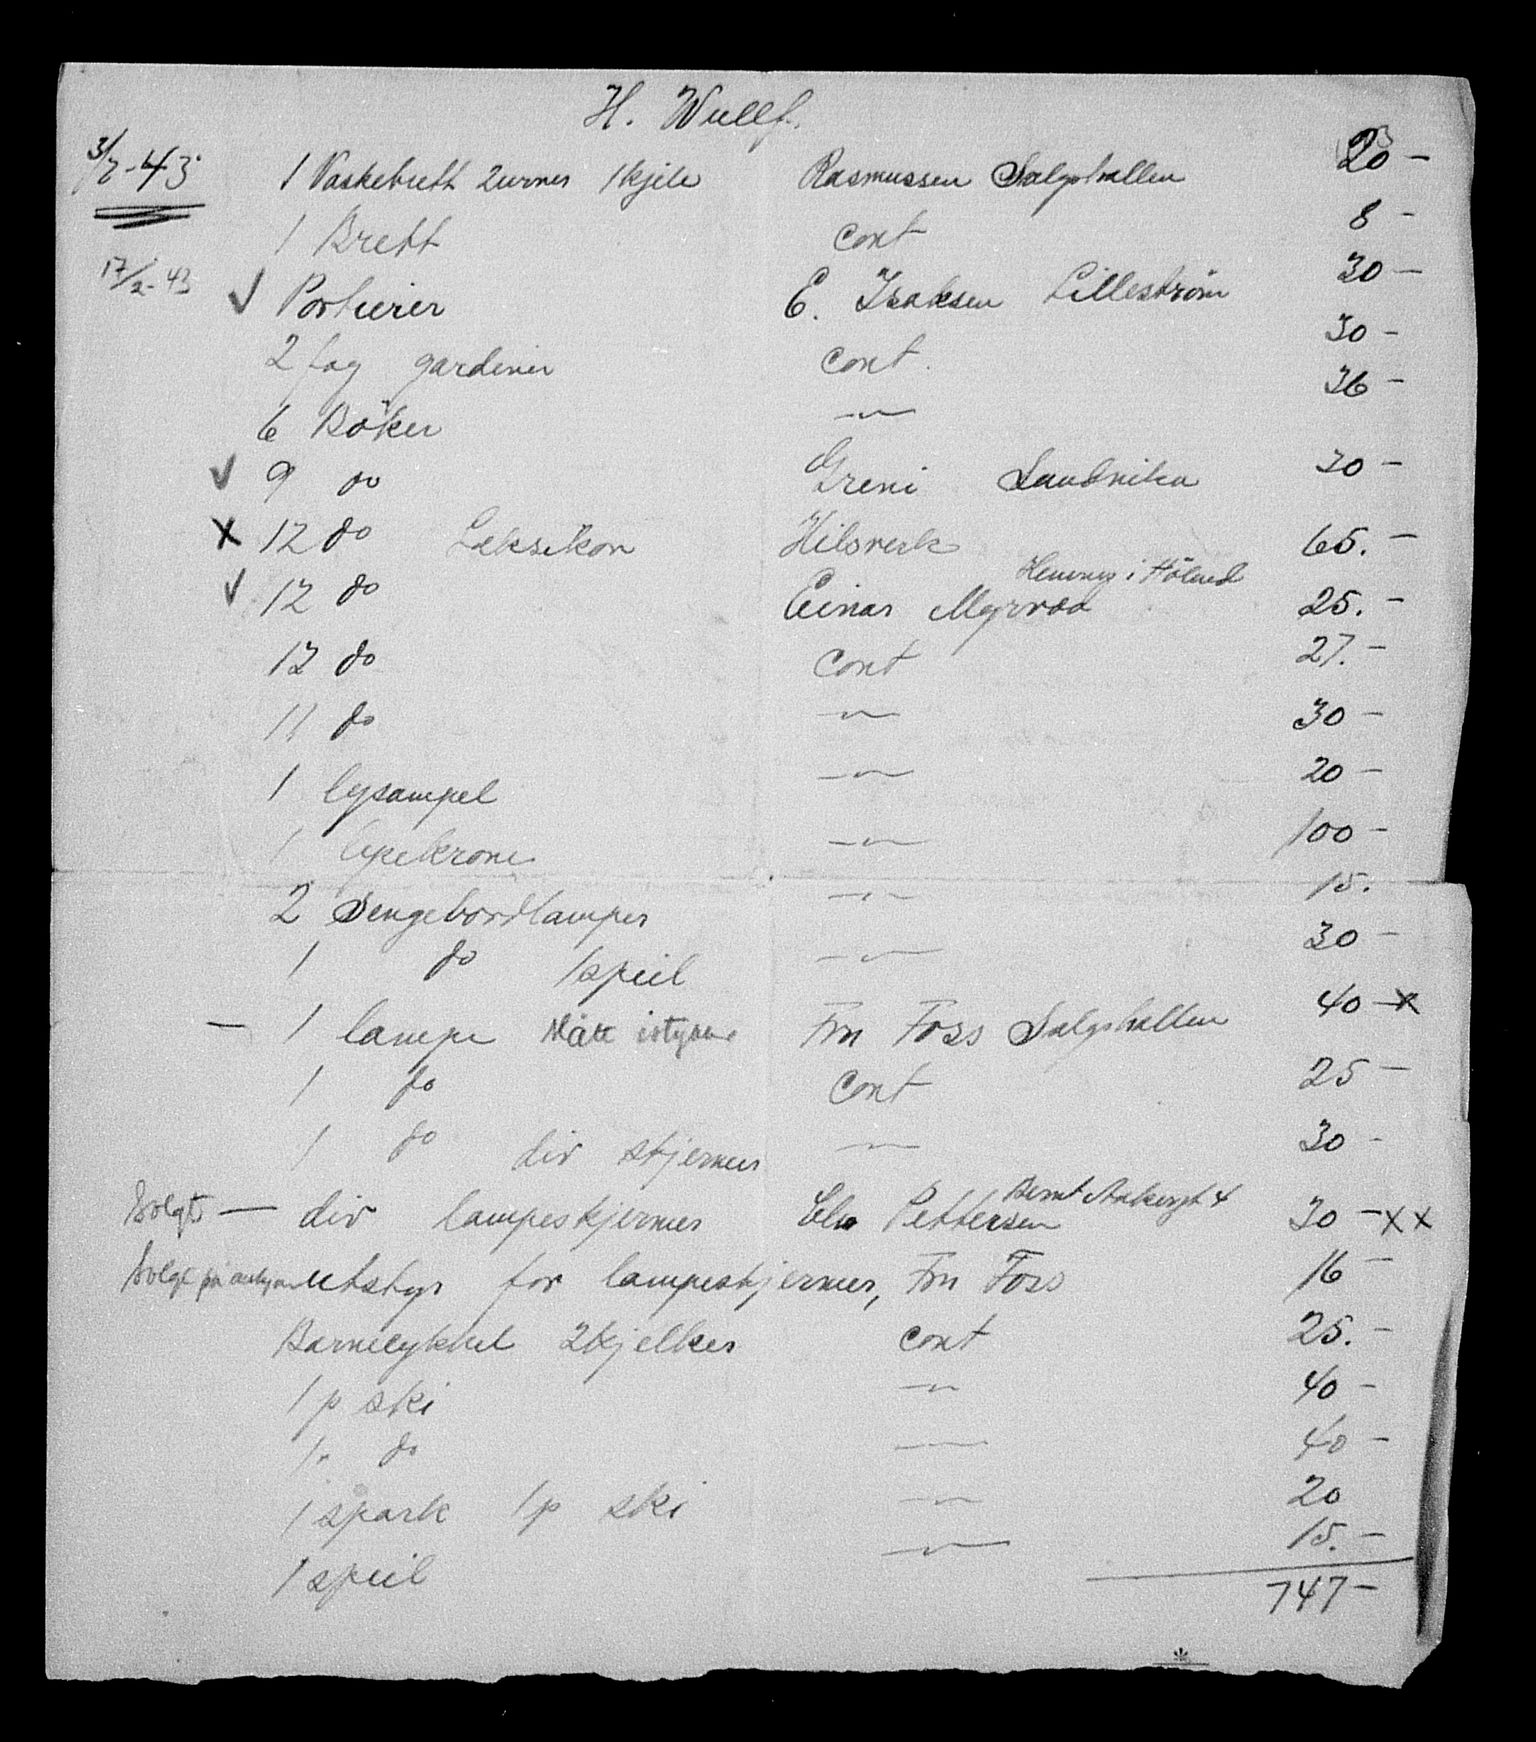 H. Wullf.
3/2-43 1 Vaskebrett 2urner 1kjele Rasmussen Salgshallen 20 -
1 Brett cont 8 -
17/2-43 √ Portierer E. Isaksen Lilleström 30 -
2 fag gardiner cont. 30 -
6 Böker -"- 36 -
√ 9 do Greni Sandvika 30 -
X 12 do Leksikon 65. -
√ 12 do Einar Myrvoa i Höland 25. -
12 do cont 27. -
11 do -"- 30 -
1 lysampel -"- 20 -
1 -"- 100 -
2 Sengebordlamper -"- 15.
1 do 1speil -"- 30 -
- 1 lampe Fru Foss Salgshallen 40 - x
1 do cont 25 -
1 do div skjermer -"- 30 -
Solgt - div lampeskjermer Pettersen Bernt Ankersgt 4 30 - x x
Solgt på utstyr for lampeskjermer, Fru Foss 16 -
Barnecykkel 2kjelker cont 25. -
1 p ski -"- 40 -
1 " do -"- 40 -
1 spark 1p ski -"- 20
1 speil -"- 15. -
747 -